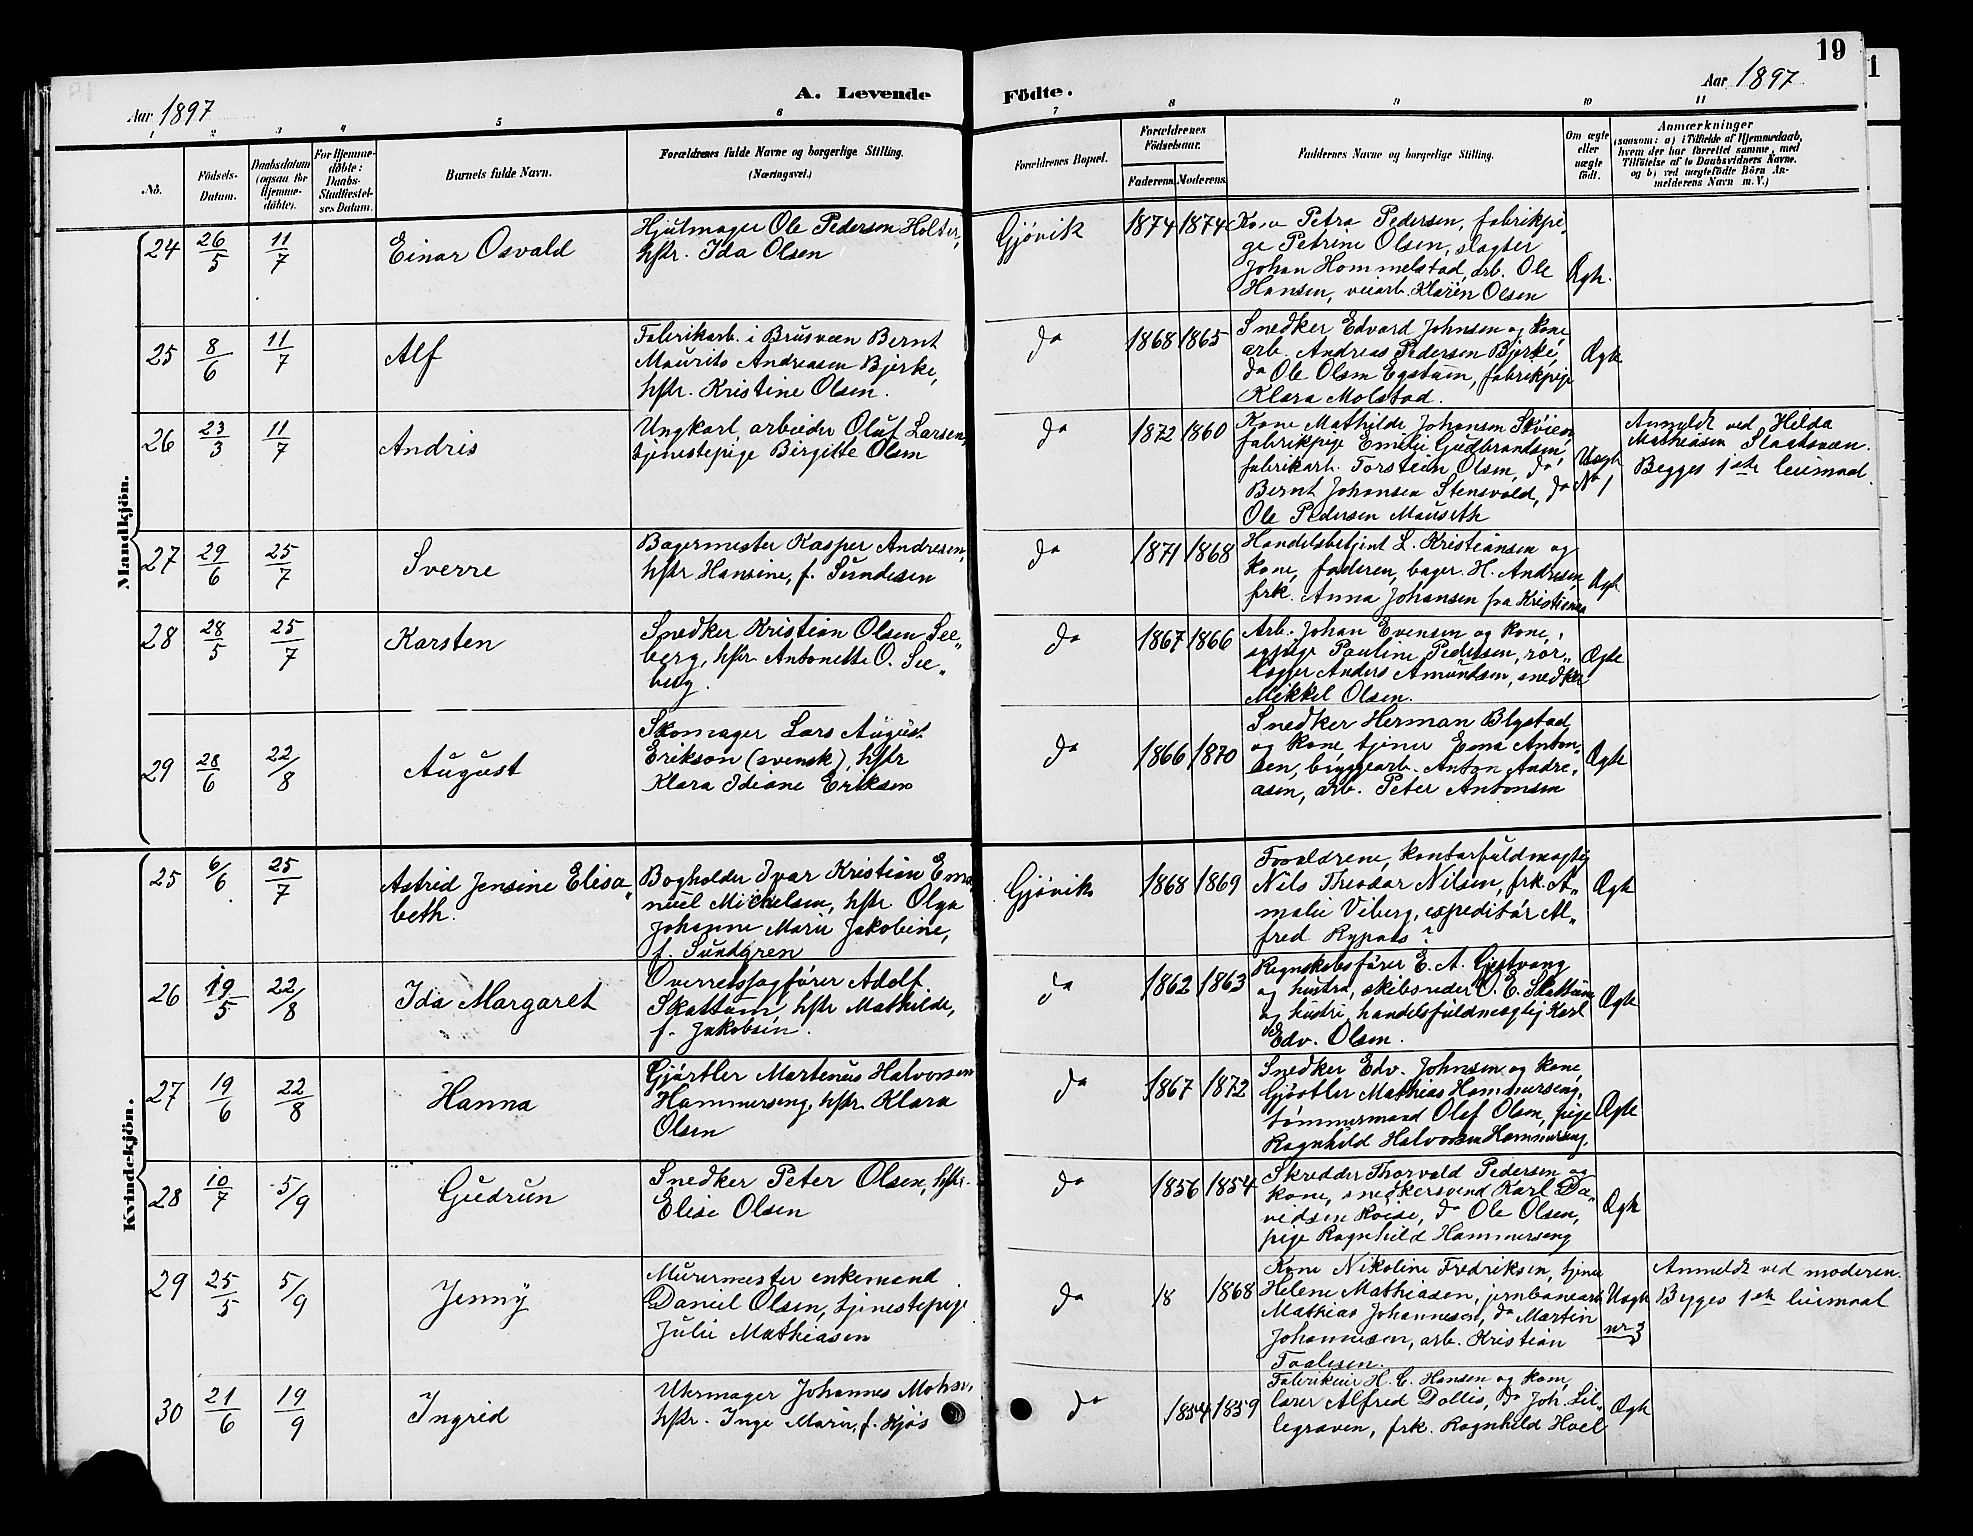 19
Aar 1897
A. Levende
Födte.
Aar 1897
1 2 3 4 5 6 7 8 9 10 11
No.
Födsels-Datum.
Daabsdatum (ogsaa for Hjemme-döbte).
For Hjemme-döbte: Daabs-Stadfæstel-ses Datum.
Barnets fulde Navn.
Forældrenes fulde Navne og borgerlige Stilling.
(Næringsvei.)
Forældrenes Bopæl.
Forældrenes Födselsaar.
Faderens. Moderens.
Faddernes Navne og borgerlige Stilling.
Om ægte eller uægte födt.
Anmærkninger
(saasom: a) i Tilfælde af Hjemmedaab,
hvem der har forrettet samme, med
Tilföielse af to Daabsvidners Navne.
og b) ved uægtefödte Börn An-
melderens Navn m. V.)
Mandkjön.
24 26/5 11/7 Einar Osvald
Hjulmager Ole Pedersen Holter,
hstr. Ida Olsen
Gjövik 1874 1874
Kone Petra Pedersen, fabrikpi-
ge Petrine Olsen, slagter
Johan Hommelstad, arb. Ole
Hansen, veiarb. Klaren Olsen
Ægte.
25 8/6 11/7 Alf
Fabrikarb. i Brusveen Bernt
Maurits Andreasen Bjerke,
hstr. Kristine Olsen.
do 1868 1865
Snedker Edvard Johnsen og kone,
arb. Andreas Pedersen Bjerke,
do Ole Olsen Egstuen, fabrikpige
Klara Molstad.
Ægte
26 23/3 11/7 Andris
Ungkarl arbeider Oluf Larsen,
tjenestepige Birgitte Olsen
do 1872 1860
Kone Mathilde Johansen Skvien,
fabrikpige Emilie Gudbrandsen,
fabrikarb. Torstein Olsen, do
Bernt Johansen Stensvold, do
Ole Pedersen Mauseth
Uægte
No 1
Anmeldt ved Hilda
Mathiasen Slaatsveen.
Begges 1ste leiermaal.
27 29/6 25/7 Sverre
Bagermester Kasper Andresen,
hstr Hansine, f. Sundesen
do 1871 1868
Handelsbetjent L. Kristiansen og
kone, faderen, bager H. Andresen,
frk. Anna Johansen fra Kristiania
Ægte
28 28/5 25/7 Karsten
Snedker Kristian Olsen See-
berg, hstr. Antonette O. See-
berg.
do 1867 1866
Arb. Johan Evensen og kone,
sypige Pauline Pedersen, rör-
lægger Anders Amundsen, snedker
Mikkel Olsen.
Ægte
29 28/6 22/8 August
Skomager Lars August
Erikson (svensk), hstr
Klara Idiane Eriksen
do 1866 1870
Snedker Herman Blystad
og kone, tjener Emma Anton-
sen, bryggearb. Anton Andre-
asen, arb. Peter Antonsen
Ægte
Kvindekjön.
25 6/6 25/7 Astrid Jensine Elisa-
beth.
Bogholder Ivar Kristian Ema-
nuel Mickelsen, hstr Olga
Johanne Marie Jakobine,
f. Sundgren
Gjövik 1868 1869
Forældrene, kontorfuldmægtig
Nils Theodor Nilsen, frk. A-
malie Viberg, expeditör Al-
fred Rypaas?
Ægte
26 19/5 22/8 Ida Margaret
Overretssagförer Adolf
Skattum, hstr Mathilde,
f. Jakobsen.
do 1862 1863
Regnskabsförer E. A. Gjestvang
og hustru, skibsreder O. E. Skattum
og hustru, handelsfuldmægtig Karl
Edv. Olsen.
Ægte
27 19/6 22/8 Hanna
Gjörtler Martenus Halvorsen
Hammerseng, hstr. Klara
Olsen
do 1867 1872
Snedker Edv. Johnsen og kone,
Gjörtler Mathias Hammerseng,
tömmermand Olaf Olsen, pige
Ragnhild Halvorsen Hammerseng.
Ægte
28 10/7 5/9 Gudrun
Snedker Peter Olsen, hstr.
Elise Olsen
do 1856 1854
Skrædder Thorvald Pedersen og
kone, snedkersvend Karl Da-
vidsen Koise, do Ole Olsen,
pige Ragnhild Hammerseng
Ægte
29 25/5 5/9 Jenny
Murermester enkemand
Daniel Olsen, tjenestepige
Julie Mathiasen
do 18 1868
Kone Nikoline Fredriksen, tjener
Helene Mathiasen, jernbanearb.
Mathias Johannesen, do Martin
Johannesen, arb. Kristian
Taalesen.
Uægte
nr 3
Anmeldt ved moderen.
Begges 1ste leiermaal
30 21/6 19/9 Ingrid
Uhrmager Johannes Mohn,
hstr. Inga Marie, f. Kjös
do 1854 1859
Fabrikeier H. C. Hansen og kone,
lærer Alfred Dollis, do Joh. Lil-
legraven, frk. Ragnhild Hoel
Ægte